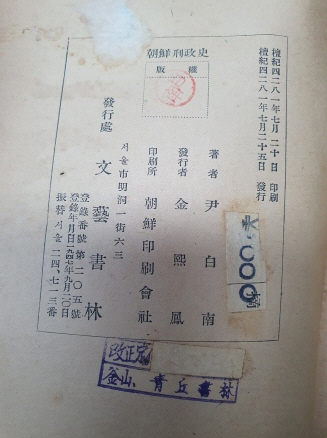 檀紀四二八一年七月二十日 印刷
檀紀四二八一年七月二十五日 發行
朝鮮刑政史
版權
著者 尹白南
發行者 金熙鳳
印刷所 朝鮮印刷會社
서울市明洞一街六三
發行處 文藝書林
登錄番號 第二〇五號
登錄年月日 一九四七年九月二〇日
振替 서울 二四、七一三番
000
改正定
釜山、青丘書林